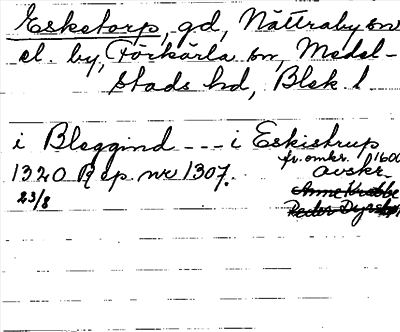 Esketorp, gd, Nättraby sn
el. by, Förkärla sn, Medel-
stads hd, Blek l
i Bleggind --- i Eskistrup
1320 Rep. nr 1307.
fr. omkr. 1600
avskr.
23/8
Anne Krabbe
Peder Dyrskjøt